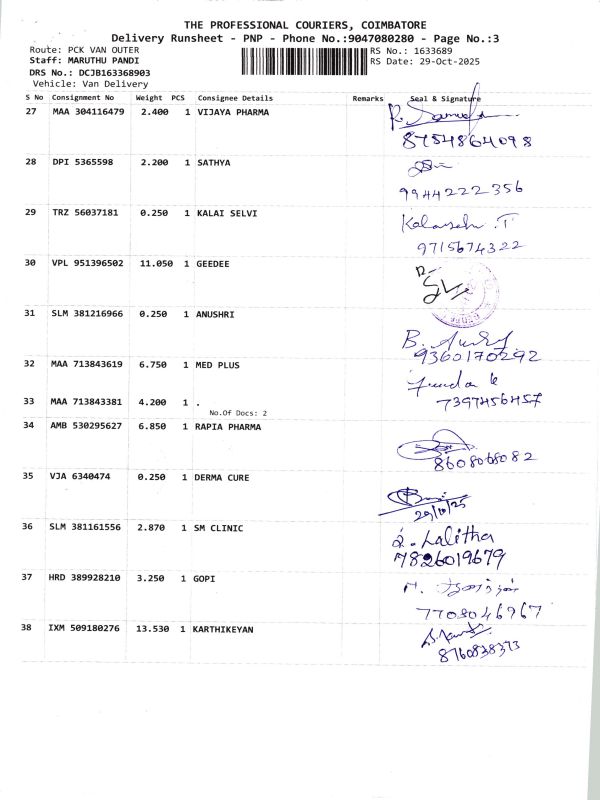 THE PROFESSIONAL COURIERS, COIMBATORE
Delivery Runsheet - PNP - Phone No.:9047080280 - Page No.:3
Route: PCK VAN OUTER
RS No.: 1633689
Staff: MARUTHU PANDI
RS Date: 29-Oct-2025
DRS No.: DCJB163368903
Vehicle: Van Delivery
S No Consignment No Weight PCS Consignee Details Remarks Seal & Signature
27 MAA 304116479 2.400 1 VIJAYA PHARMA
8754864098
28 DPI 5365598 2.200 1 SATHYA
9944222356
29 TRZ 56037181 0.250 1 KALAI SELVI
9715674322
30 VPL 951396502 11.050 1 GEEDEE
31 SLM 381216966 0.250 1 ANUSHRI
B.
9360170292
32 MAA 713843619 6.750 1 MED PLUS
33 MAA 713843381 4.200 1 .
7397456457
No.Of Docs: 2
34 AMB 530295627 6.850 1 RAPIA PHARMA
8608068082
35 VJA 6340474 0.250 1 DERMA CURE
29/10/25
36 SLM 381161556 2.870 1 SM CLINIC
Lalitha
7826019679
37 HRD 389928210 3.250 1 GOPI
7708046967
38 IXM 509180276 13.530 1 KARTHIKEYAN
8760838373